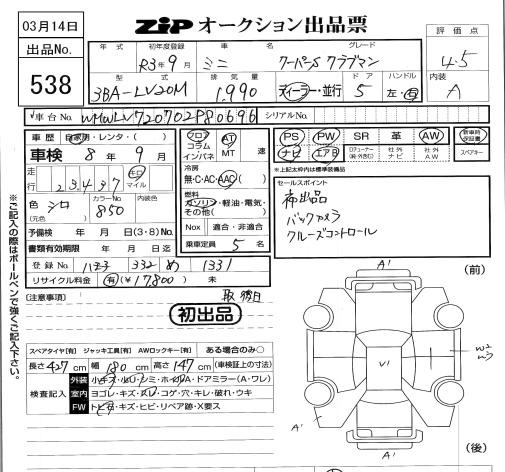 03月14日
ZIP オークション出品票
評価点
出品No.
年式 初年度登録 車名 グレード
538
R3年9月 ミニ クーパーS クラブマン
4.5
型式 排気量 ドア ハンドル
内装
3BA-LV20M 1,990 ディーラー・並行 5 左・右
A
車台No. WMWLV720702P80696 シリアルNo.
車歴 自家用・レンタ・( )
車検 8年9月
走行 23,437 km マイル
色 シロ カラーNo. 850 内装色
(元色)
予備検 年 月 日(3・8)No.
書類有効期限 年 月 日迄
登録No 332 め 1331
リサイクル料金 有(¥17,800) 未
フロア コラム インパネ AT MT 速
冷房
無・C・AC・AAC( )
燃料
ガソリン・軽油・電気・その他( )
Nox 適合・非適合
乗車定員 5 名
PS PW SR 革 AW 新車時保証書
ナビ エアB 社外ナビ 社外A.W スペアキー
※上記太枠内は標準装備品
セールスポイント
初出品
バックカメラ
クルーズコントロール
(注意事項)
初出品
スペアタイヤ[有] ジャッキ工具[有] AWロックキー[有] ある場合のみ○
長さ427cm 幅180cm 高さ147cm (車検証上の寸法)
検査記入
外装 小キズ・ドアミラー(A・ワレ)
室内 ヨゴレ・キズ・スレ・コゲ・穴・キレ・破れ・ウキ
FW トビ石・キズ・ヒビ・リペア跡・X要ス
※ご記入の際はボールペンで強くご記入下さい。
(前)
A'
V'
A'
A'
(後)